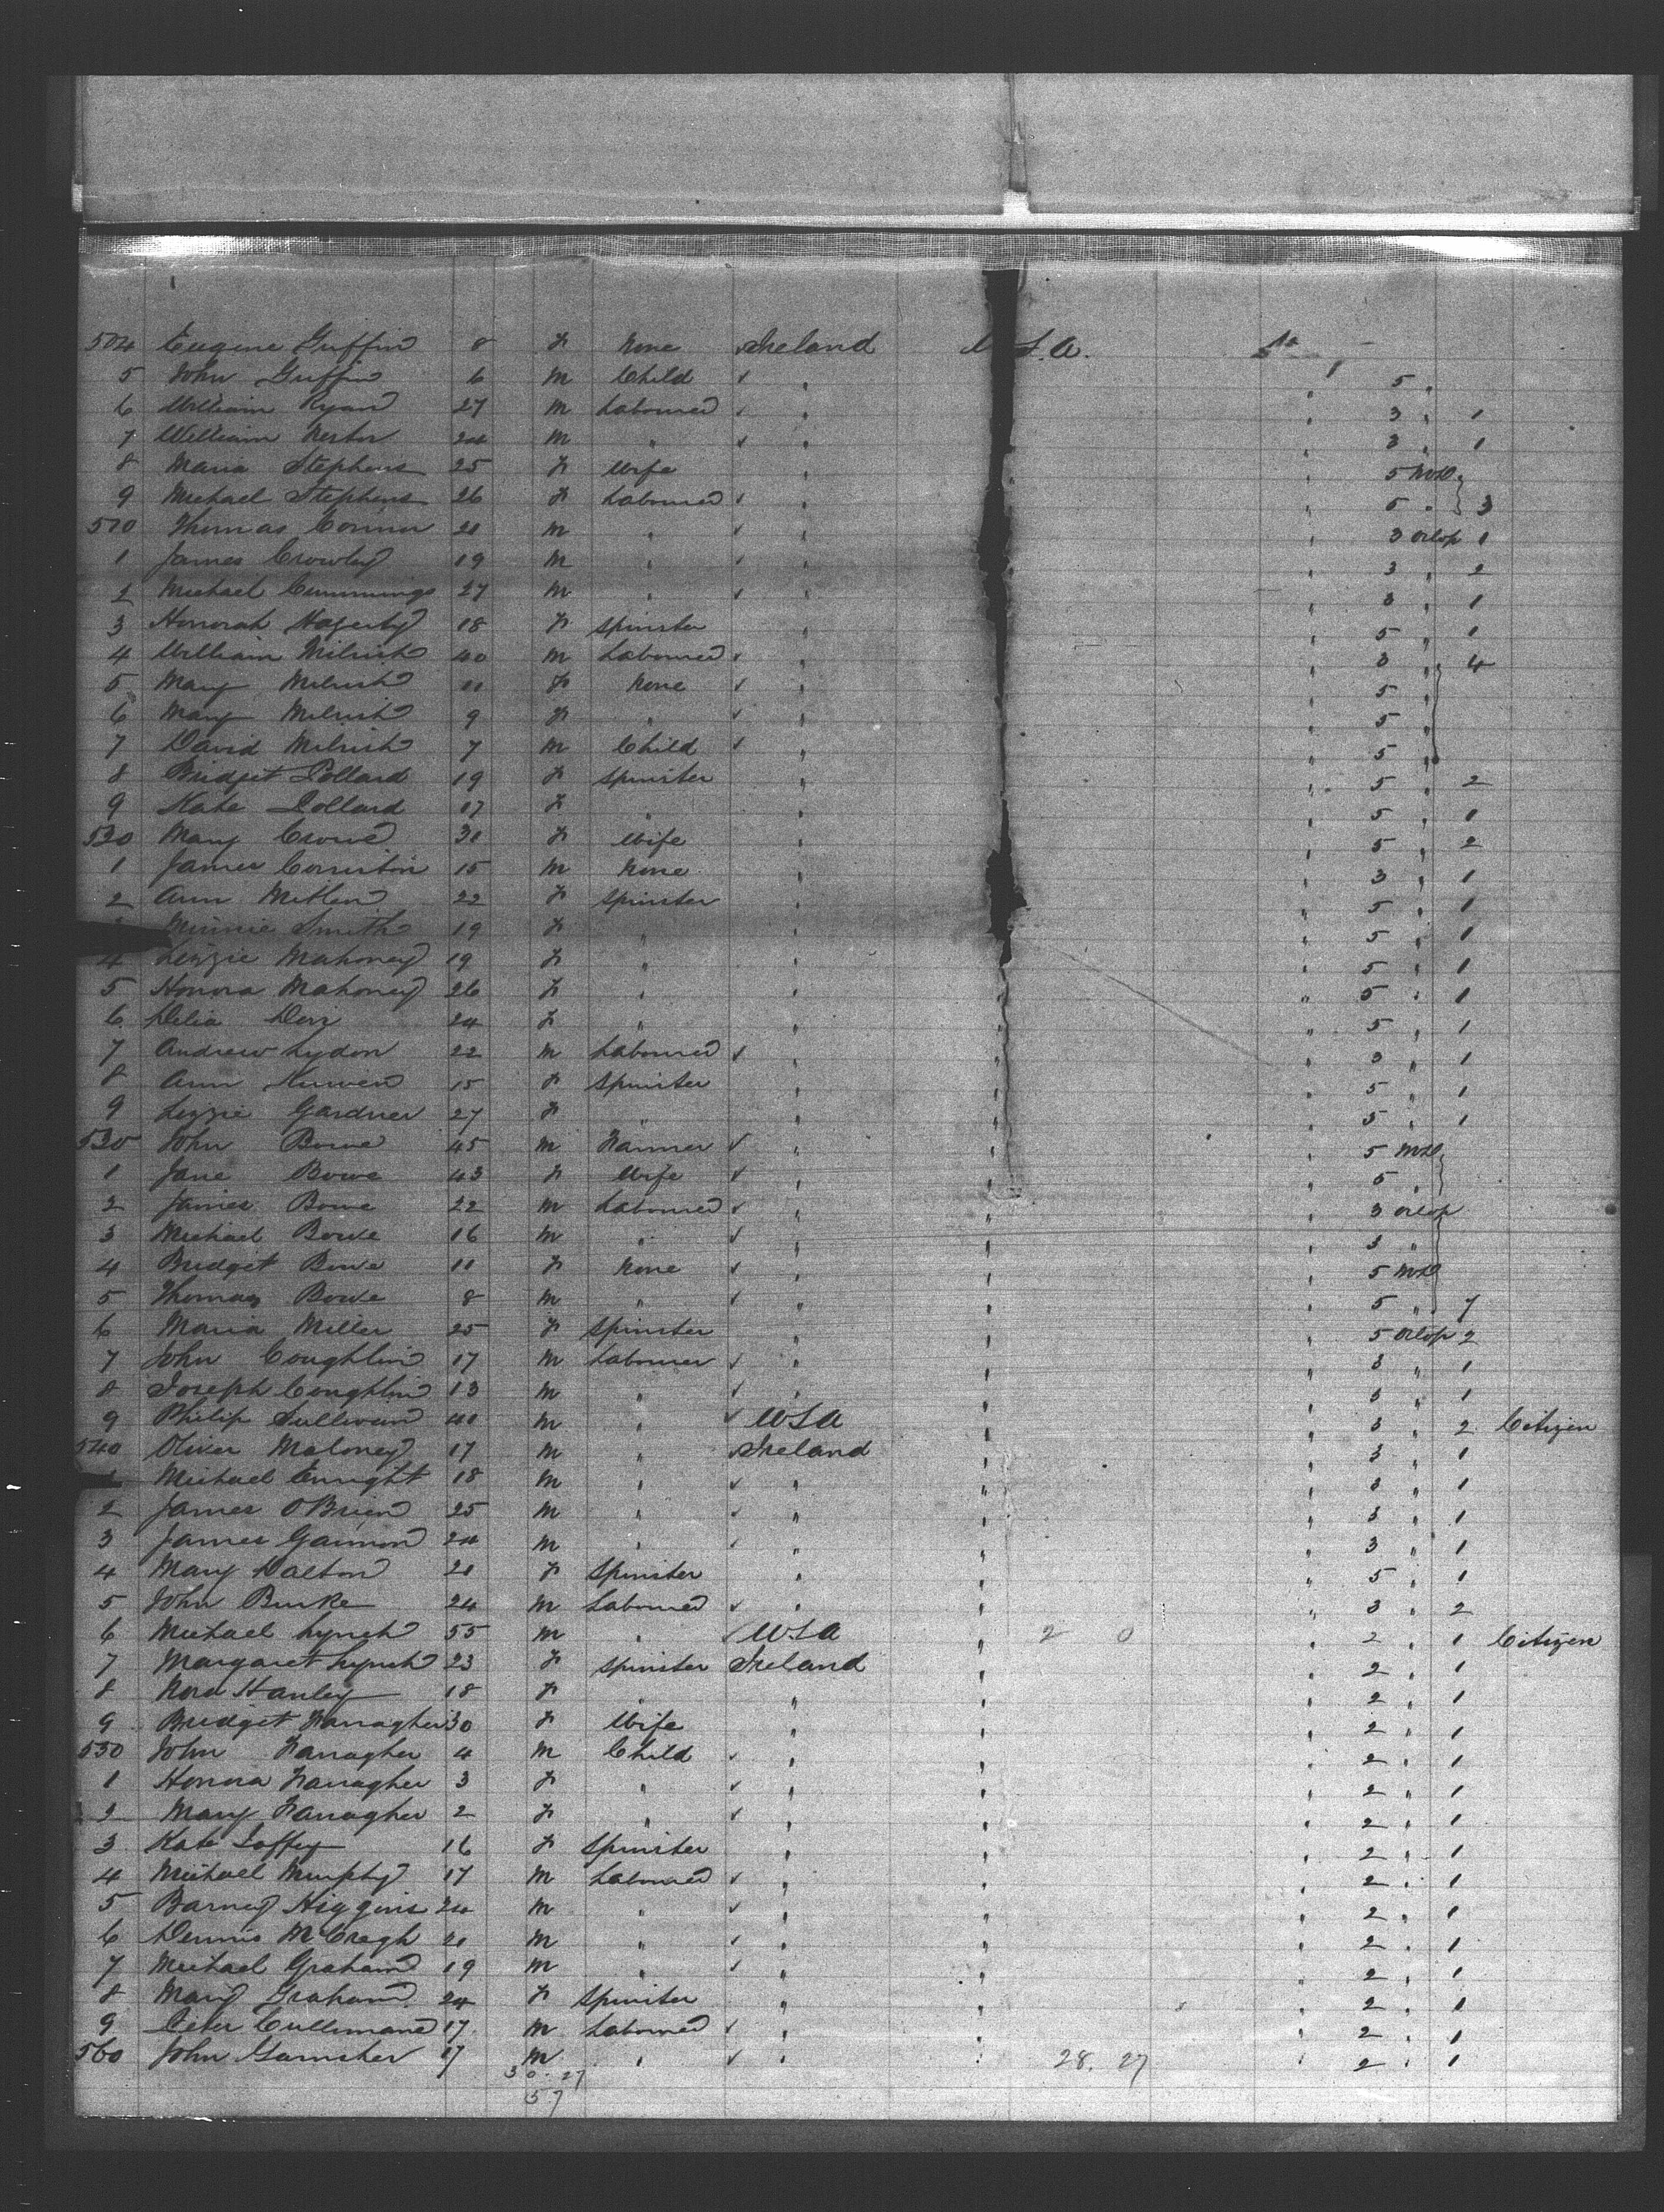 504 Eugene Griffin 8 F None Ireland U.S.A.
5 John Griffin 6 M Child " " 5 "
6 William Ryan 27 M Laboured " " 3 " 1
7 William Nestor 24 M " " " 3 " 1
8 Maria Stephens 25 F Wife " " 5
9 Michael Stephens 26 F Laboured " " 5 " 3
510 Thomas Connor 20 M " " " 3 Orlop 1
1 James Crowley 19 M " " " 3 " 2
2 Michael Cummings 27 M " " " 3 " 1
3 Honorah Hagerty 18 F Spinster " " 5 " 1
4 William 40 M Laboured " " 3 " 4
5 Mary 11 F None " " 5 "
6 Mary 9 F " " " 5 "
7 David 7 M Child " " 5 "
8 Bridget 19 F Spinster " " 5 " 2
9 Kate 17 F " " " 5 " 1
520 Mary Crowe 30 F Wife " " 5 " 2
1 James 15 M None " " 3 " 1
2 Ann 22 F Spinster " " 5 " 1
Minnie Smith 19 F " " " 5 " 1
4 Lizzie Mahoney 19 F " " " 5 " 1
5 Honora Mahoney 26 F " " " 5 " 1
6 Delia 24 F " " " 5 " 1
7 Andrew Lydon 22 M Laboured " " 3 " 1
8 Ann 15 F Spinster " " 5 " 1
9 Lizzie Gardner 27 F " " " 5 " 1
530 John Bowe 45 M Farmer " " 5
1 Jane Bowe 43 F Wife " " 5 "
2 James Bowe 22 M Laboured " " 3 Orlop
3 Michael Bowe 16 M " " " 3 "
4 Bridget Bowe 11 F None " " 5
5 Thomas Bowe 8 M " " " 5 " 7
6 Maria Miller 25 F Spinster " " 5 Orlop 2
7 John Coughlin 17 M Labourer " " 3 " 1
8 Joseph Coughlin 13 M " " " 3 " 1
9 Philip Sullivan 40 M " USA " 3 " 2 Citizen
540 Oliver Maloney 17 M " Ireland " 3 " 1
Michael Enright 18 M " " " 3 " 1
2 James OBrien 25 M " " " 3 " 1
3 James Gannon 24 M " " " 3 " 1
4 Mary Dalton 20 F Spinster " " 5 " 1
5 John Burke 24 M Laboured " " 3 " 2
6 Michael Lynch 55 M " USA " 2 0 " 2 " 1 Citizen
7 Margaret Lynch 23 F Spinster Ireland " 2 " 1
8 Nora Hanley 18 F " " " 2 " 1
9 Bridget Fanagher 30 F Wife " " 2 " 1
550 John Fanagher 4 M Child " " 2 " 1
1 Honora Fanagher 3 F " " " 2 " 1
2 Mary Fanagher 2 F " " " 2 " 1
3 Kate 16 F Spinster " " 2 " 1
4 Michael Murphy 17 M Laboured " " 2 " 1
5 Barney Higgins 24 M " " " 2 " 1
6 Dennis McCragh 20 M " " " 2 " 1
7 Michael Graham 19 M " " " 2 " 1
8 Mary Graham 24 F Spinster " " 2 " 1
9 Peter Cullinane 17 M Laboured " " 2 " 1
560 John 17 M " " " 28. 27 " 2 " 1
30. 27
57